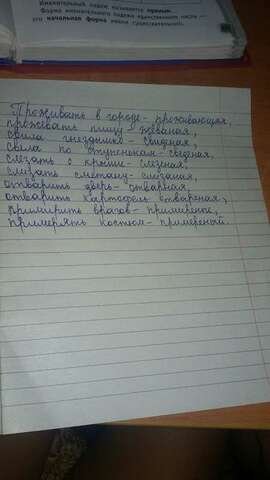 Именительный падеж называется прямым.
Форма именительного падежа единственного числа —
это начальная форма имени существительного.
Проживать в городе- проживающая,
прожевать пищу- жеваная,
свила гнездышко- свидная,
свела по ступенькам- сведеная,
слезать с крыши- слезаная,
слизать сметану- слизаная,
отворить дверь- отварная,
отварить картофель отвареная,
примирить врагов- примиреные,
примерять костюм- примереный.